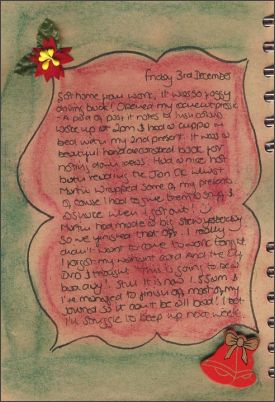 Friday 3rd December
Got home from work, it was so foggy
driving back! Opened my advent pressie
- A pad of post it notes in lush colours
Woke up at 2pm & had a cuppa in
bed with my 2nd present. It was a
beautiful hand decorated book for
noting down ideas. Had a nice hot
bath reading the Jan CC whilst
Martin wrapped some of my presents.
Of course I had to give them to &
when I got out! :)
Martin had made a bit stew yesterday
so we finished that off. I really
didn't want to come to work tonight,
I forgot my and the Elf
DVD & thought "This is going to be a
bus day!". Still it is now 1.55am &
I've managed to finish off most of my
journal so it can't be all bad! I bet
I'll struggle to keep up next week.